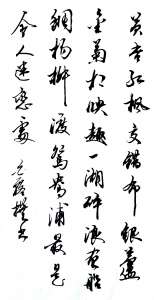 黄杏红枫交错布银芦
金菊相映趣一湖碎浪画船
钢杨柳渡鸳鸯浦最是
令人迷恋处